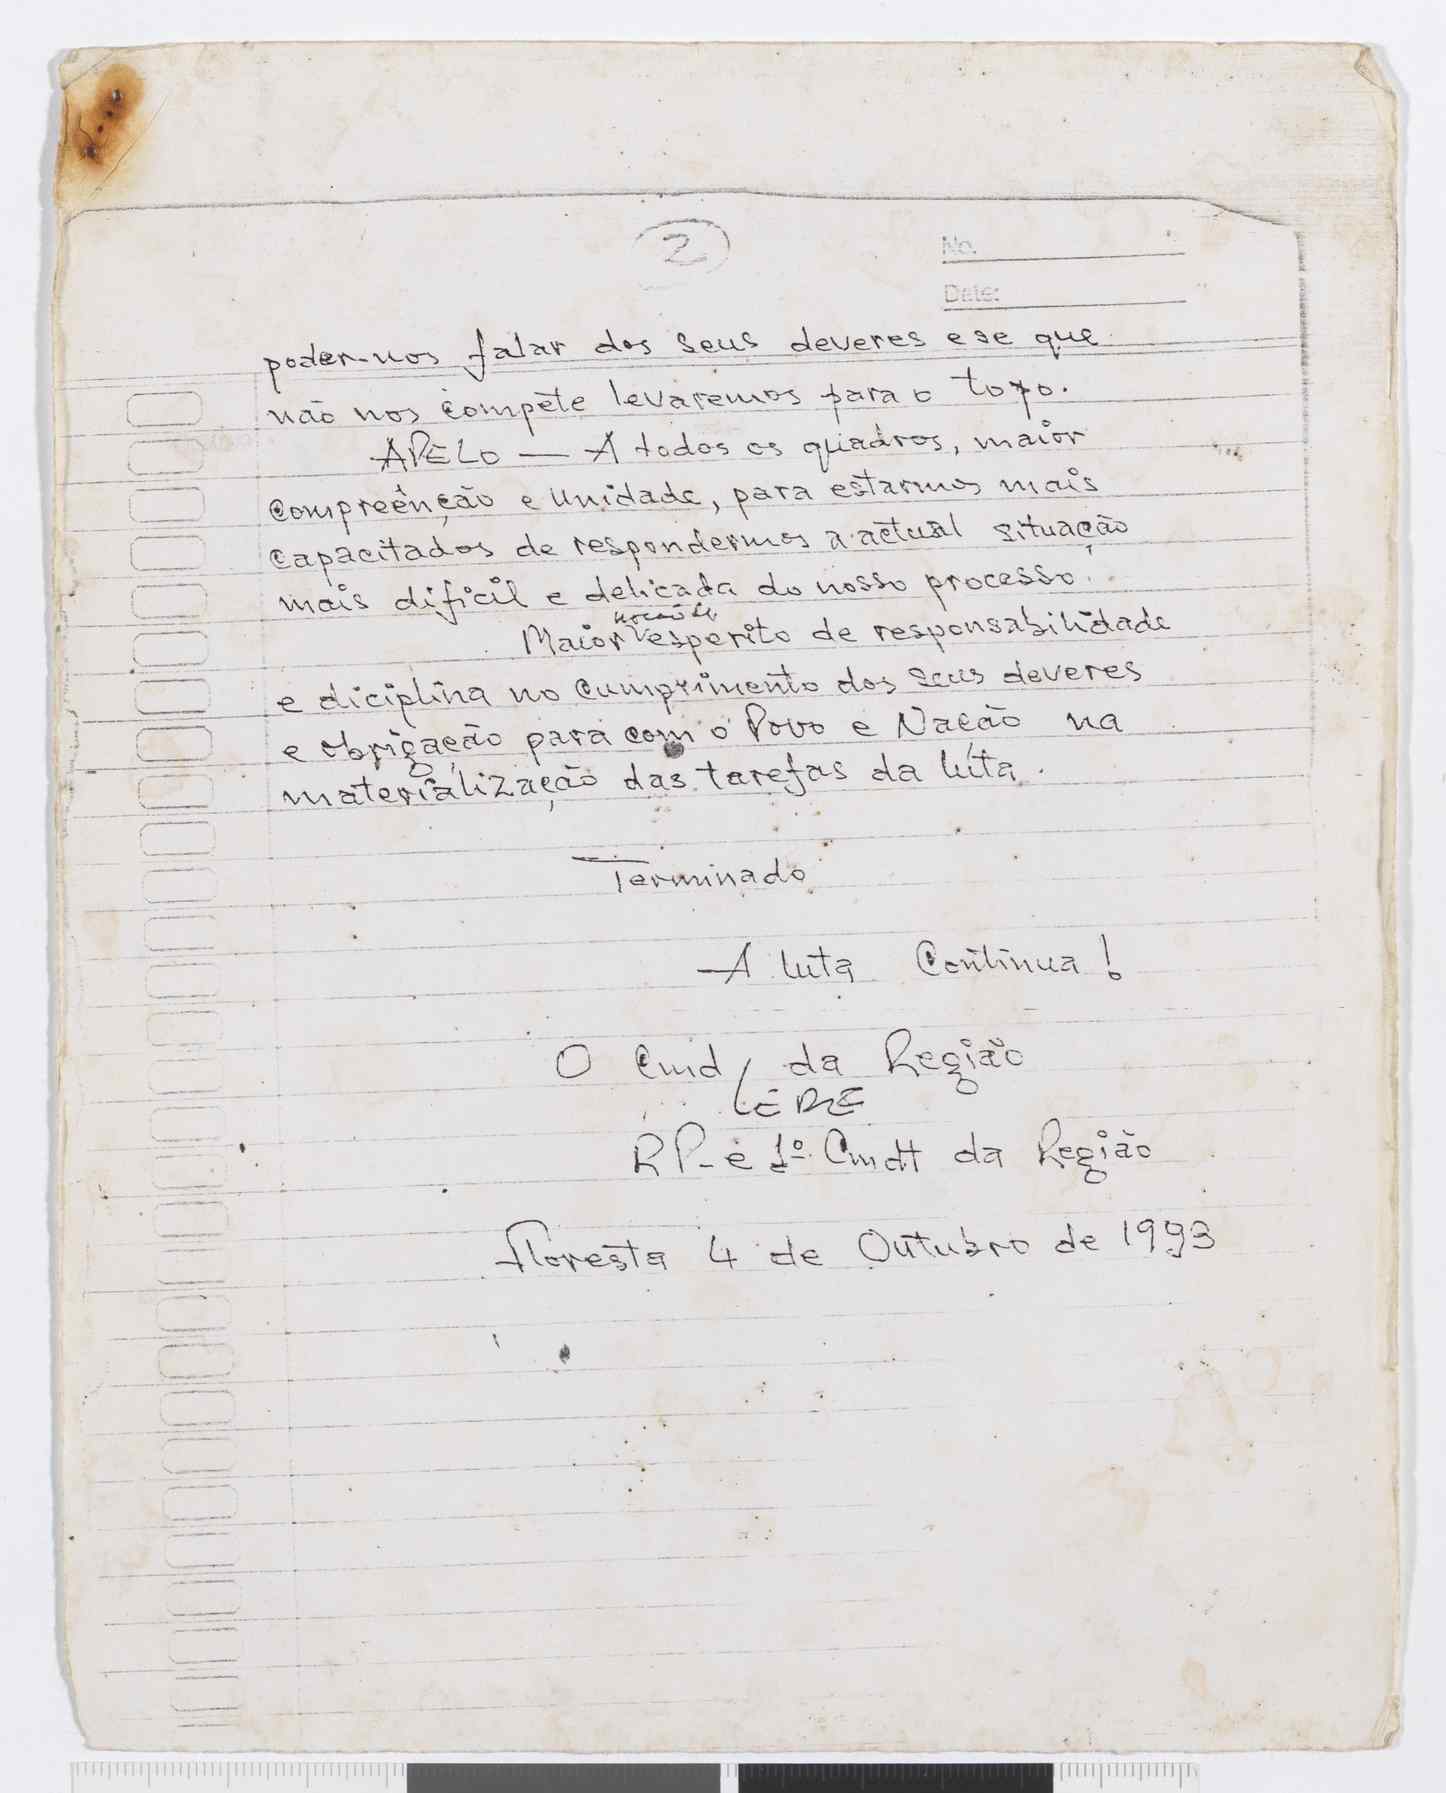 2
No.
Date:
poder-nos falar dos seus deveres e se que
não nos compete levaremos para o topo.
APELO — A todos os quadros, maior
compreênção e unidade, para estarmos mais
capacitados de respondermos a actual situação
mais dificil e delicada do nosso processo.
noção de
Maior esperito de responsabilidade
e diciplina no cumprimento dos seus deveres
e obrigação para com o Povo e Nação na
materialização das tarefas da luta.
Terminado
A luta Continua!
O Cmd da Região
LERE
RP- e 1º Cmdt da Região
Floresta 4 de Outubro de 1993